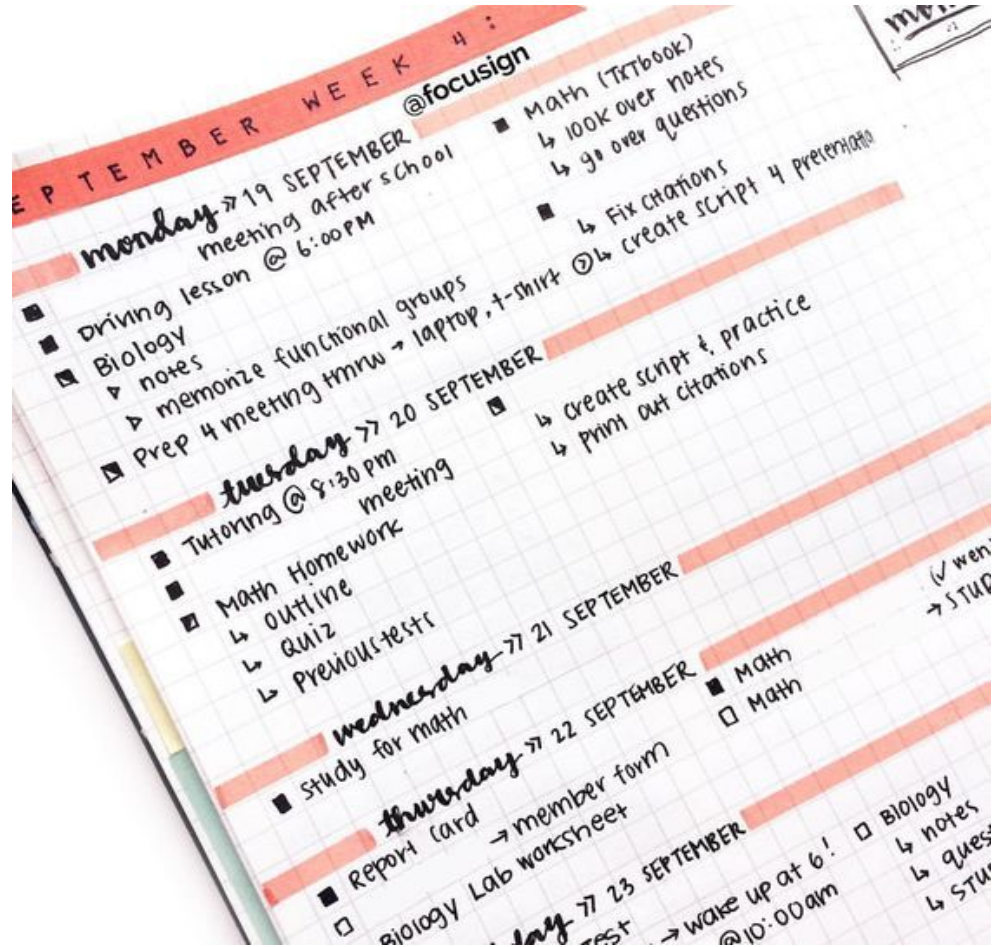 EPTEMBER WEEK 4:
@focusign
monday >> 19 SEPTEMBER
meeting after school
Driving lesson @ 6:00PM
Biology
notes
memorize functional groups
Prep 4 meeting tmrw → laptop, t-shirt
Math (TxTbook)
↳ look over notes
↳ go over questions
↳ Fix citations
↳ create script 4 presentatio
tuesday >> 20 SEPTEMBER
Tutoring @ 8:30 pm
meeting
Math Homework
↳ outline
↳ Quiz
↳ Previous tests
↳ create script & practice
↳ print out citations
wednesday >> 21 SEPTEMBER
study for math
thursday >> 22 SEPTEMBER
Report Card
→ member form
Biology Lab worksheet
Math
Math
(✓ wen
→ STUD
day >> 23 SEPTEMBER
→ wake up at 6!
@10:00am
Biology
↳ notes
↳ quest
↳ STU